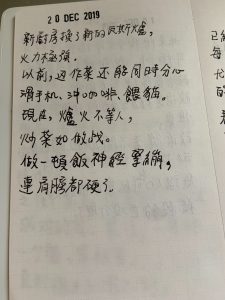 20 DEC 2019
新廚房換了新的瓦斯爐,
火力極強。
以前,边作菜还能同時分心
滑手机、沖咖啡、餵貓。
現在,爐火不等人,
炒菜如做战。
做一頓飯神經緊繃,
連肩膀都硬了。
已
每